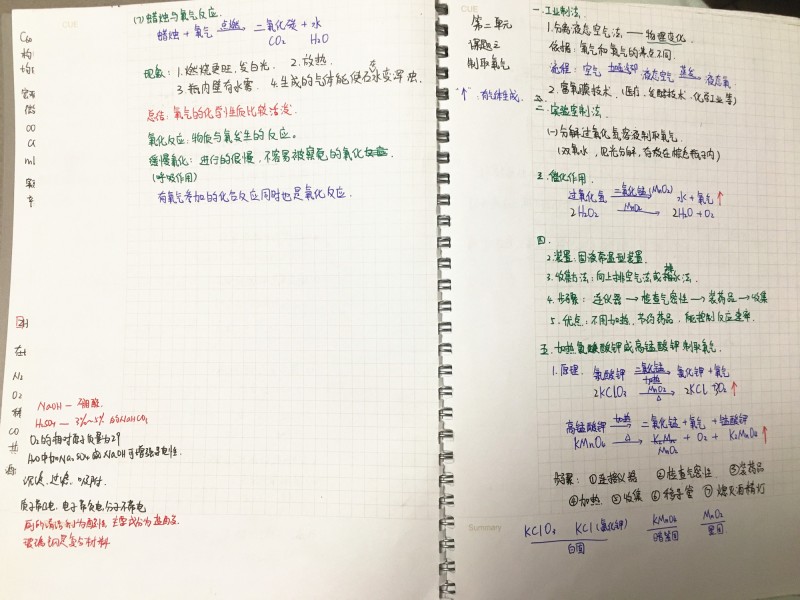 CUE
(7) 蜡烛与氧气反应.
蜡烛 + 氧气 点燃→ 二氧化碳 + 水
CO₂ H₂O
现象: 1.燃烧更旺,发白光. 2.放热.
3.瓶内壁有水雾. 4.生成的气体能使石灰水变浑浊.
总结: 氧气的化学性质比较活泼.
氧化反应: 物质与氧发生的反应。
缓慢氧化: 进行的很慢,不容易被察觉的氧化
(呼吸作用)
有氧气参加的化合反应同时也是氧化反应.
ml
N₂
O₂
CO
NaOH — 硼酸
H₂SO₄ — 3%~5% 的NaHCO₃
H₂O中加Na₂SO₄或NaOH可增强导电性.
沉淀. 过滤. 吸附.
质子带正电. 电子带负电. 分子不带电
CUE
第二单元
课题三
制取氧气
"↑" 有气体生成.
一.工业制法.
1.分离液态空气法. —— 物理变化
依据: 氮气和氧气的沸点不同.
流程: 空气 液态空气 蒸发→ 液态氧
2. 富氧膜技术. (医疗, 发酵技术. 化学工业等)
二.实验室制法.
(一) 分解过氧化氢溶液制取氧气
(双氧水, 见光分解, 存放在棕色瓶子内)
3. 催化作用.
过氧化氢 二氧化锰(MnO₂)→ 水 + 氧气↑
2H₂O₂ MnO₂→ 2H₂O + O₂
四.
2.装置: 固液常温型装置.
3.收集方法: 向上排空气法或排水法.
4. 步骤: 连仪器 → 检查气密性 → 装药品 → 收集
5. 优点: 不用加热. 节约药品. 能控制反应速率.
五. 加热氯酸钾或高锰酸钾制取氧气.
1.原理. 氯酸钾 二氧化锰 加热→ 氯化钾 + 氧气
2KClO₃ MnO₂ △→ 2KCl 3O₂↑
高锰酸钾 加热→ 二氧化锰 + 氧气 + 锰酸钾
KMnO₄ △→ MnO₂ + O₂ + K₂MnO₄↑
步骤: ①连接仪器 ②检查气密性. ③装药品
④加热. ⑤收集 ⑥移导管 ⑦熄灭酒精灯
Summary
KClO₃ KCl (氯化钾) KMnO₄ MnO₂
白固 暗紫固 黑固.